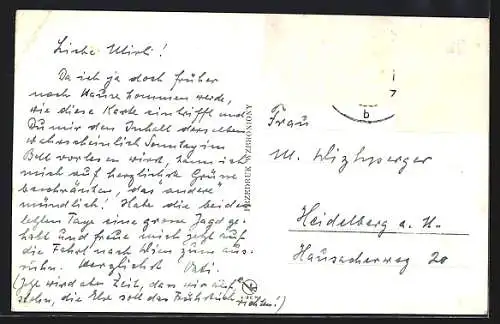 Liebe Mirl!
Da ich ja doch früher
nach Hause kommen werde,
wie diese Karte eintrifft und
Du mir den Inhalt derselben
wahrscheinlich Sonntag im
Bett vorlesen wirst, kann ich
mich auf herzlichste Grüsse
beschränken, das "andere"
mündlich! Habe die beiden
letzten Tage eine grosse Jagd ge-
habt und freue mich jetzt auf
die Fahrt nach Wien zum aus-
ruhn. Herzlichst
(Ich wird aber Zeit, dass wir auf-
stehn, die Else soll das Frühstück richten!)
PRZEDRUK WZBRONIONY
b
Frau
M.
Heidelberg a. N.
Hausackerweg 20